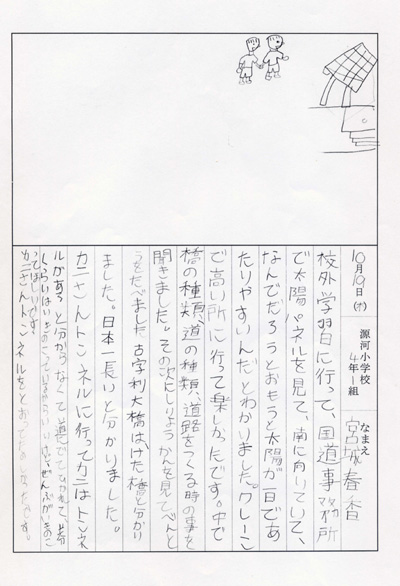 10月19日(水)
源河小学校
4年1組
なまえ
宮城春香
校外学習に行って、国道事務所
で太陽パネルを見て、南に向いていて、
なんでだろうとおもうと太陽が一日であ
たりやすいんだとわかりました。クレーン
で高い所に行って楽しかったです。中で
橋の種類、道の種類、道路をつくる時の事を
聞きました。その次にしりょうかんを見てべんと
うをたべました。古宇利大橋はけた橋と分かり
ました。日本一長いと分かりました。
カニさんトンネルに行ってカニはトンネ
ルがあると分からなくて道にでてひかれて
ってほしいです。
カニさんトンネルをとおって